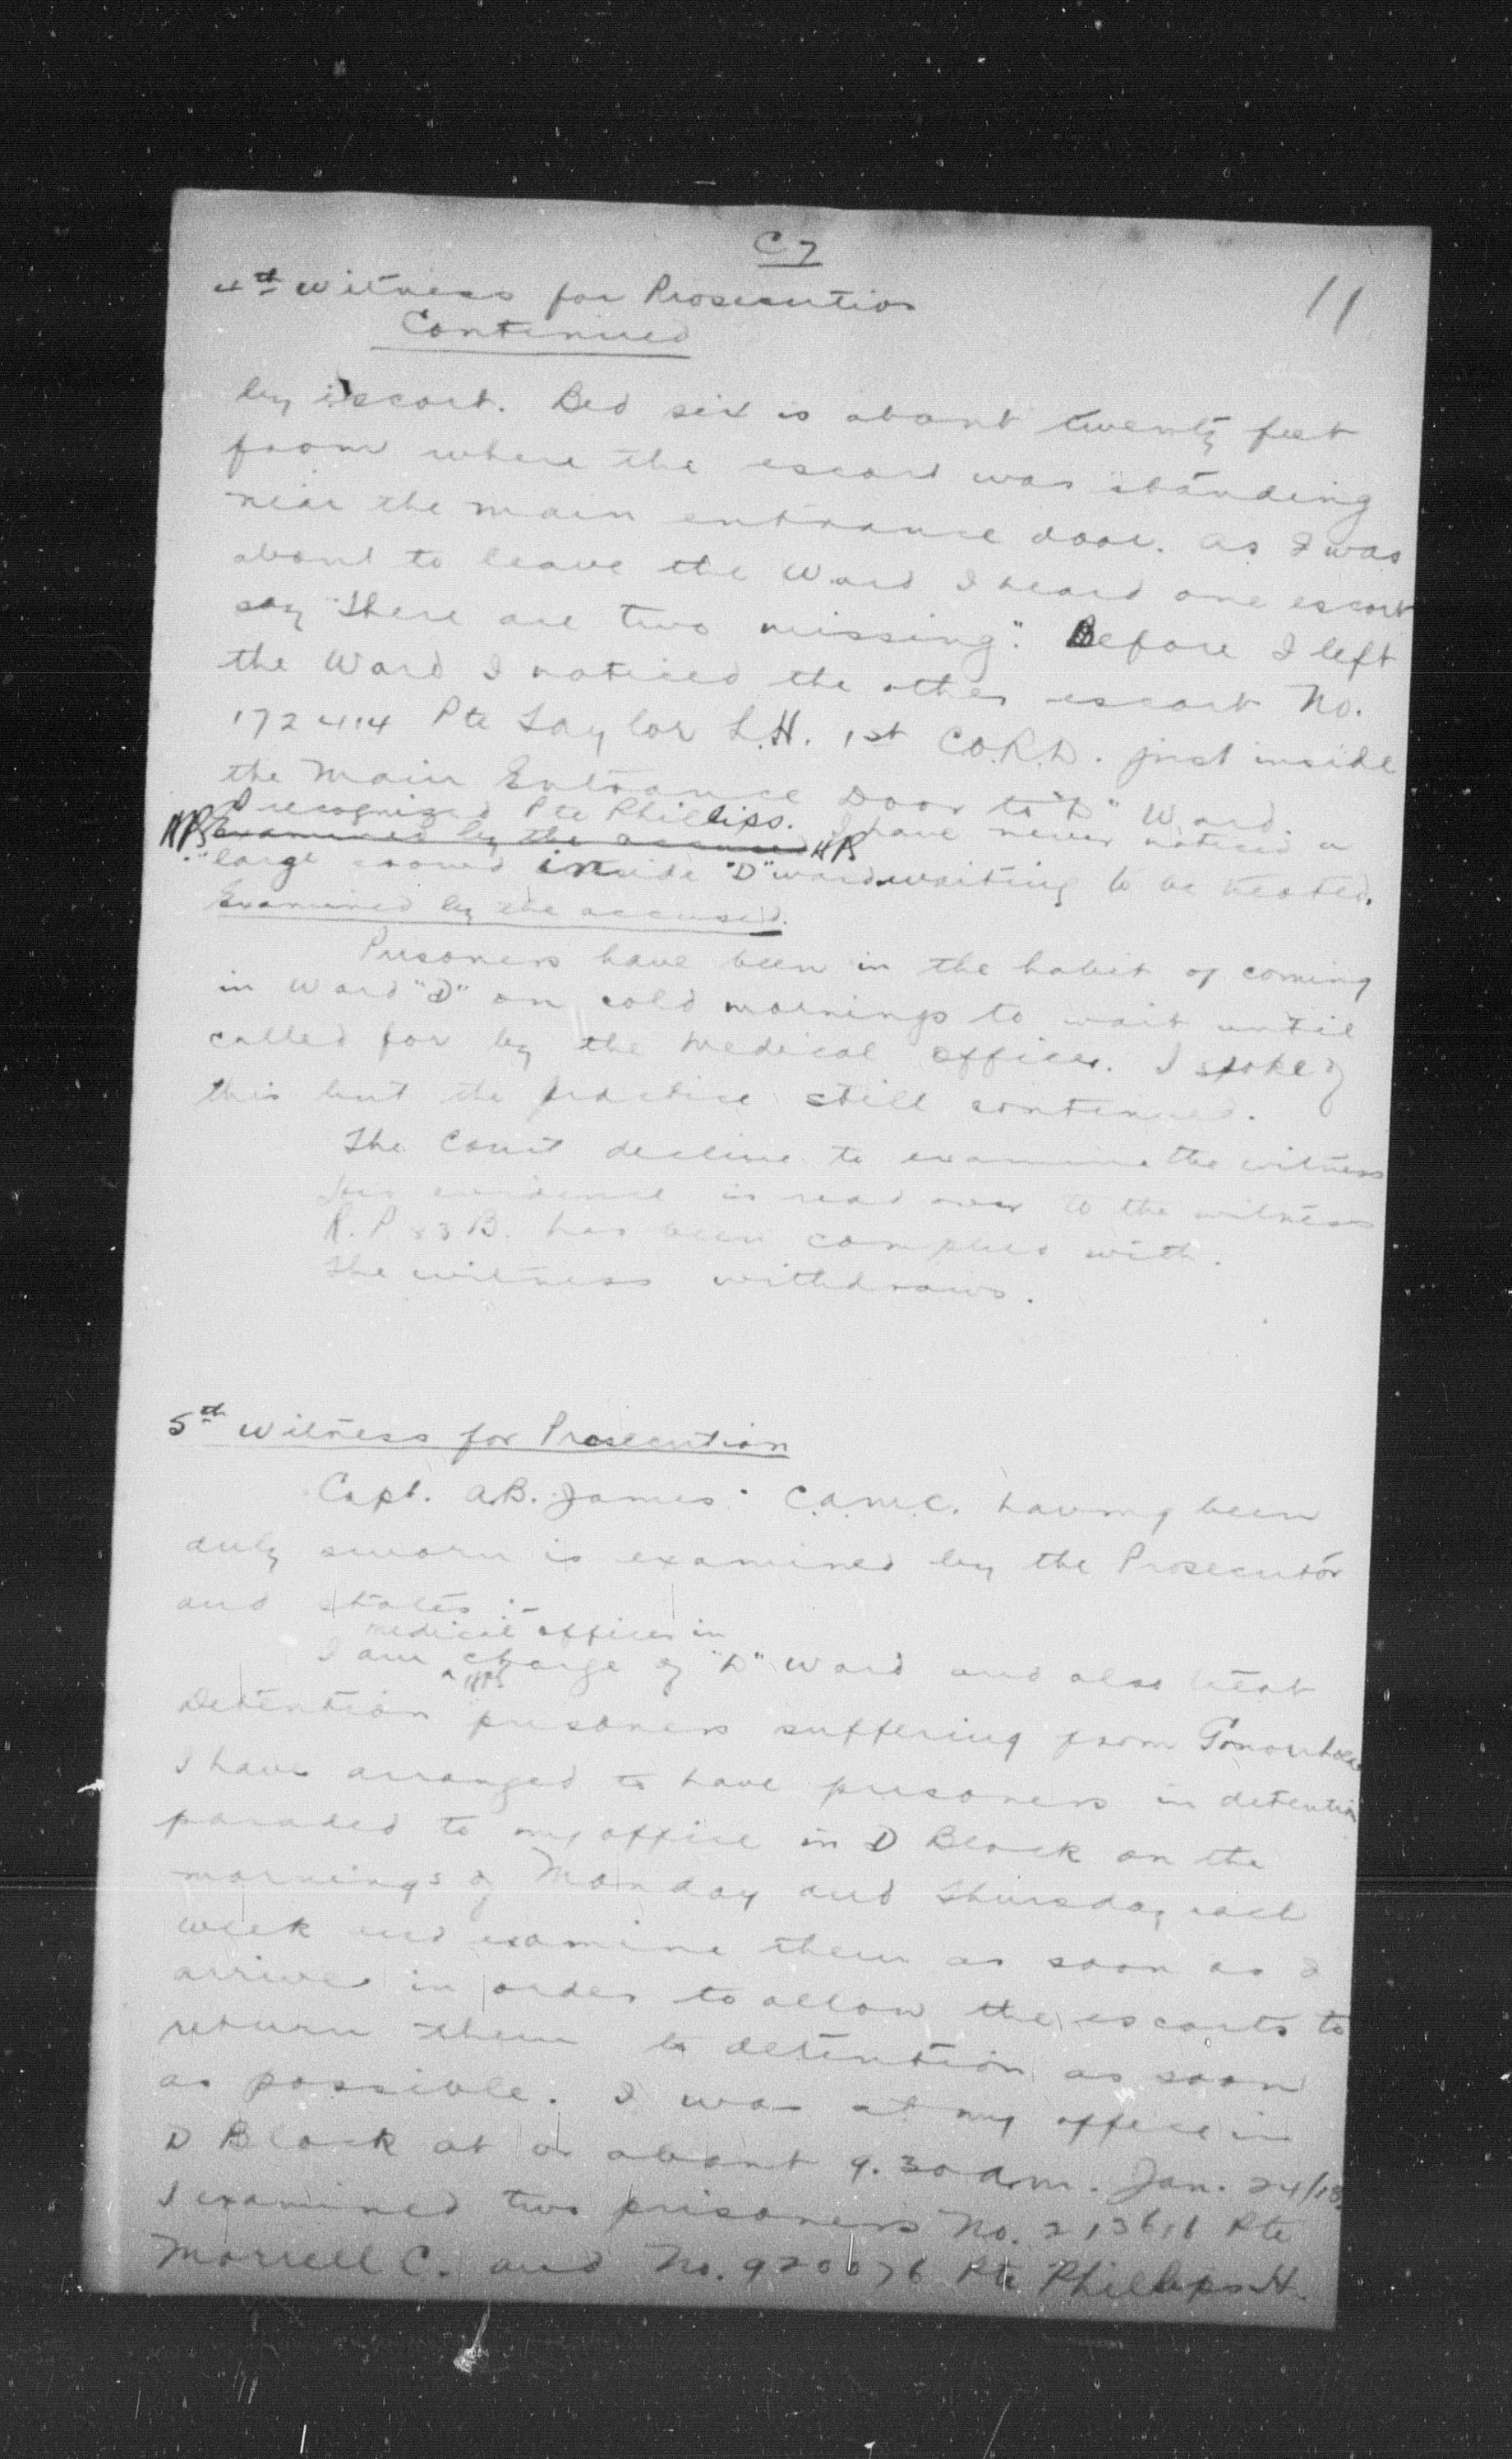 C7
11
4th Witness for Prosecution
Continued
by escort. Bed six is about twenty feet
from where the escort was standing
near the main entrance door. As I was
about to leave the Ward I heard one escort
say "There are two missing". Before I left
the Ward I noticed the other escort No.
172414 Pte Taylor L.H. 1st C.O.R.D. just inside
the Main Entrance Door to "D" Ward.
I recognized Pte Phillips. I have never noticed a
Examined by the accused
large crowd inside "D" ward waiting to be treated.
Examined by the accused.
Prisoners have been in the habit of coming
in Ward "D" on cold mornings to wait until
called for by the Medical Officer. I spoke of
this but the practice still continued.
The Court decline to examine the witness
His evidence is read over to the witness
R.P 83 B. has been complied with.
The witness withdraws.
5th Witness for Prosecution
Capt. A.B. James C.A.M.C. having been
duly sworn is examined by the Prosecutor
and states :-
medical officer in
I am charge of "D" Ward and also treat
Detention prisoners suffering from Gonorrhoea
I have arranged to have prisoners in detention
paraded to my office in D Block on the
mornings of Monday and Thursday each
week and examine them as soon as I
arrive in order to allow the escorts to
return them to detention as soon
as possible. I was at my office in
D Block at or about 9.30 a.m. Jan. 24/18.
I examined two prisoners No. 213611 Pte
Morrell C. and No. 920076 Pte Phillips H.